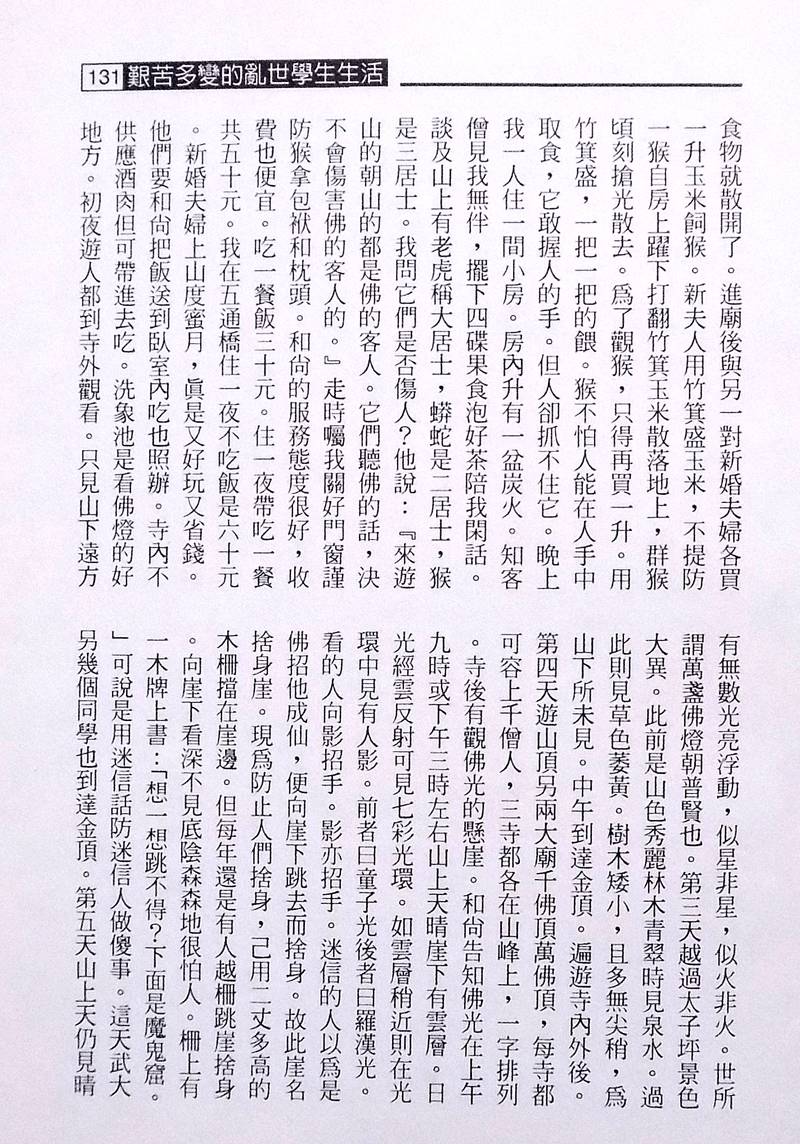 131 艱苦多變的亂世學生生活
食物就散開了。進廟後與另一對新婚夫婦各買
一升玉米飼猴。新夫人用竹箕盛玉米，不提防
一猴自房上躍下打翻竹箕玉米散落地上，群猴
頃刻搶光散去。爲了觀猴，只得再買一升。用
竹箕盛，一把一把的餵。猴不怕人能在人手中
取食，它敢握人的手。但人卻抓不住它。晚上
我一人住一間小房。房內升有一盆炭火。知客
僧見我無伴，擺下四碟果食泡好茶陪我閑話。
談及山上有老虎稱大居士，蟒蛇是二居士，猴
是三居士。我問它們是否傷人？他說：『來遊
山的朝山的都是佛的客人。它們聽佛的話，決
不會傷害佛的客人的。』走時囑我關好門窗謹
防猴拿包袱和枕頭。和尚的服務態度很好，收
費也便宜。吃一餐飯三十元。住一夜帶吃一餐
共五十元。我在五通橋住一夜不吃飯是六十元
。新婚夫婦上山度蜜月，眞是又好玩又省錢。
他們要和尚把飯送到臥室內吃也照辦。寺內不
供應酒肉但可帶進去吃。洗象池是看佛燈的好
地方。初夜遊人都到寺外觀看。只見山下遠方
有無數光亮浮動，似星非星，似火非火。世所
謂萬盞佛燈朝普賢也。第三天越過太子坪景色
大異。此前是山色秀麗林木青翠時見泉水。過
此則見草色萎黃。樹木矮小，且多無尖稍，爲
山下所未見。中午到達金頂。遍遊寺內外後。
第四天遊山頂另兩大廟千佛頂萬佛頂，每寺都
可容上千僧人，三寺都各在山峰上，一字排列
。寺後有觀佛光的懸崖。和尚告知佛光在上午
九時或下午三時左右山上天晴崖下有雲層。日
光經雲反射可見七彩光環。如雲層稍近則在光
環中見有人影。前者曰童子光後者曰羅漢光。
看的人向影招手。影亦招手。迷信的人以爲是
佛招他成仙，便向崖下跳去而捨身。故此崖名
捨身崖。現爲防止人們捨身，己用二丈多高的
木柵擋在崖邊。但每年還是有人越柵跳崖捨身
。向崖下看深不見底陰森森地很怕人。柵上有
一木牌上書：「想一想跳不得？下面是魔鬼窟。
」可說是用迷信話防迷信人做傻事。這天武大
另幾個同學也到達金頂。第五天山上天仍見晴